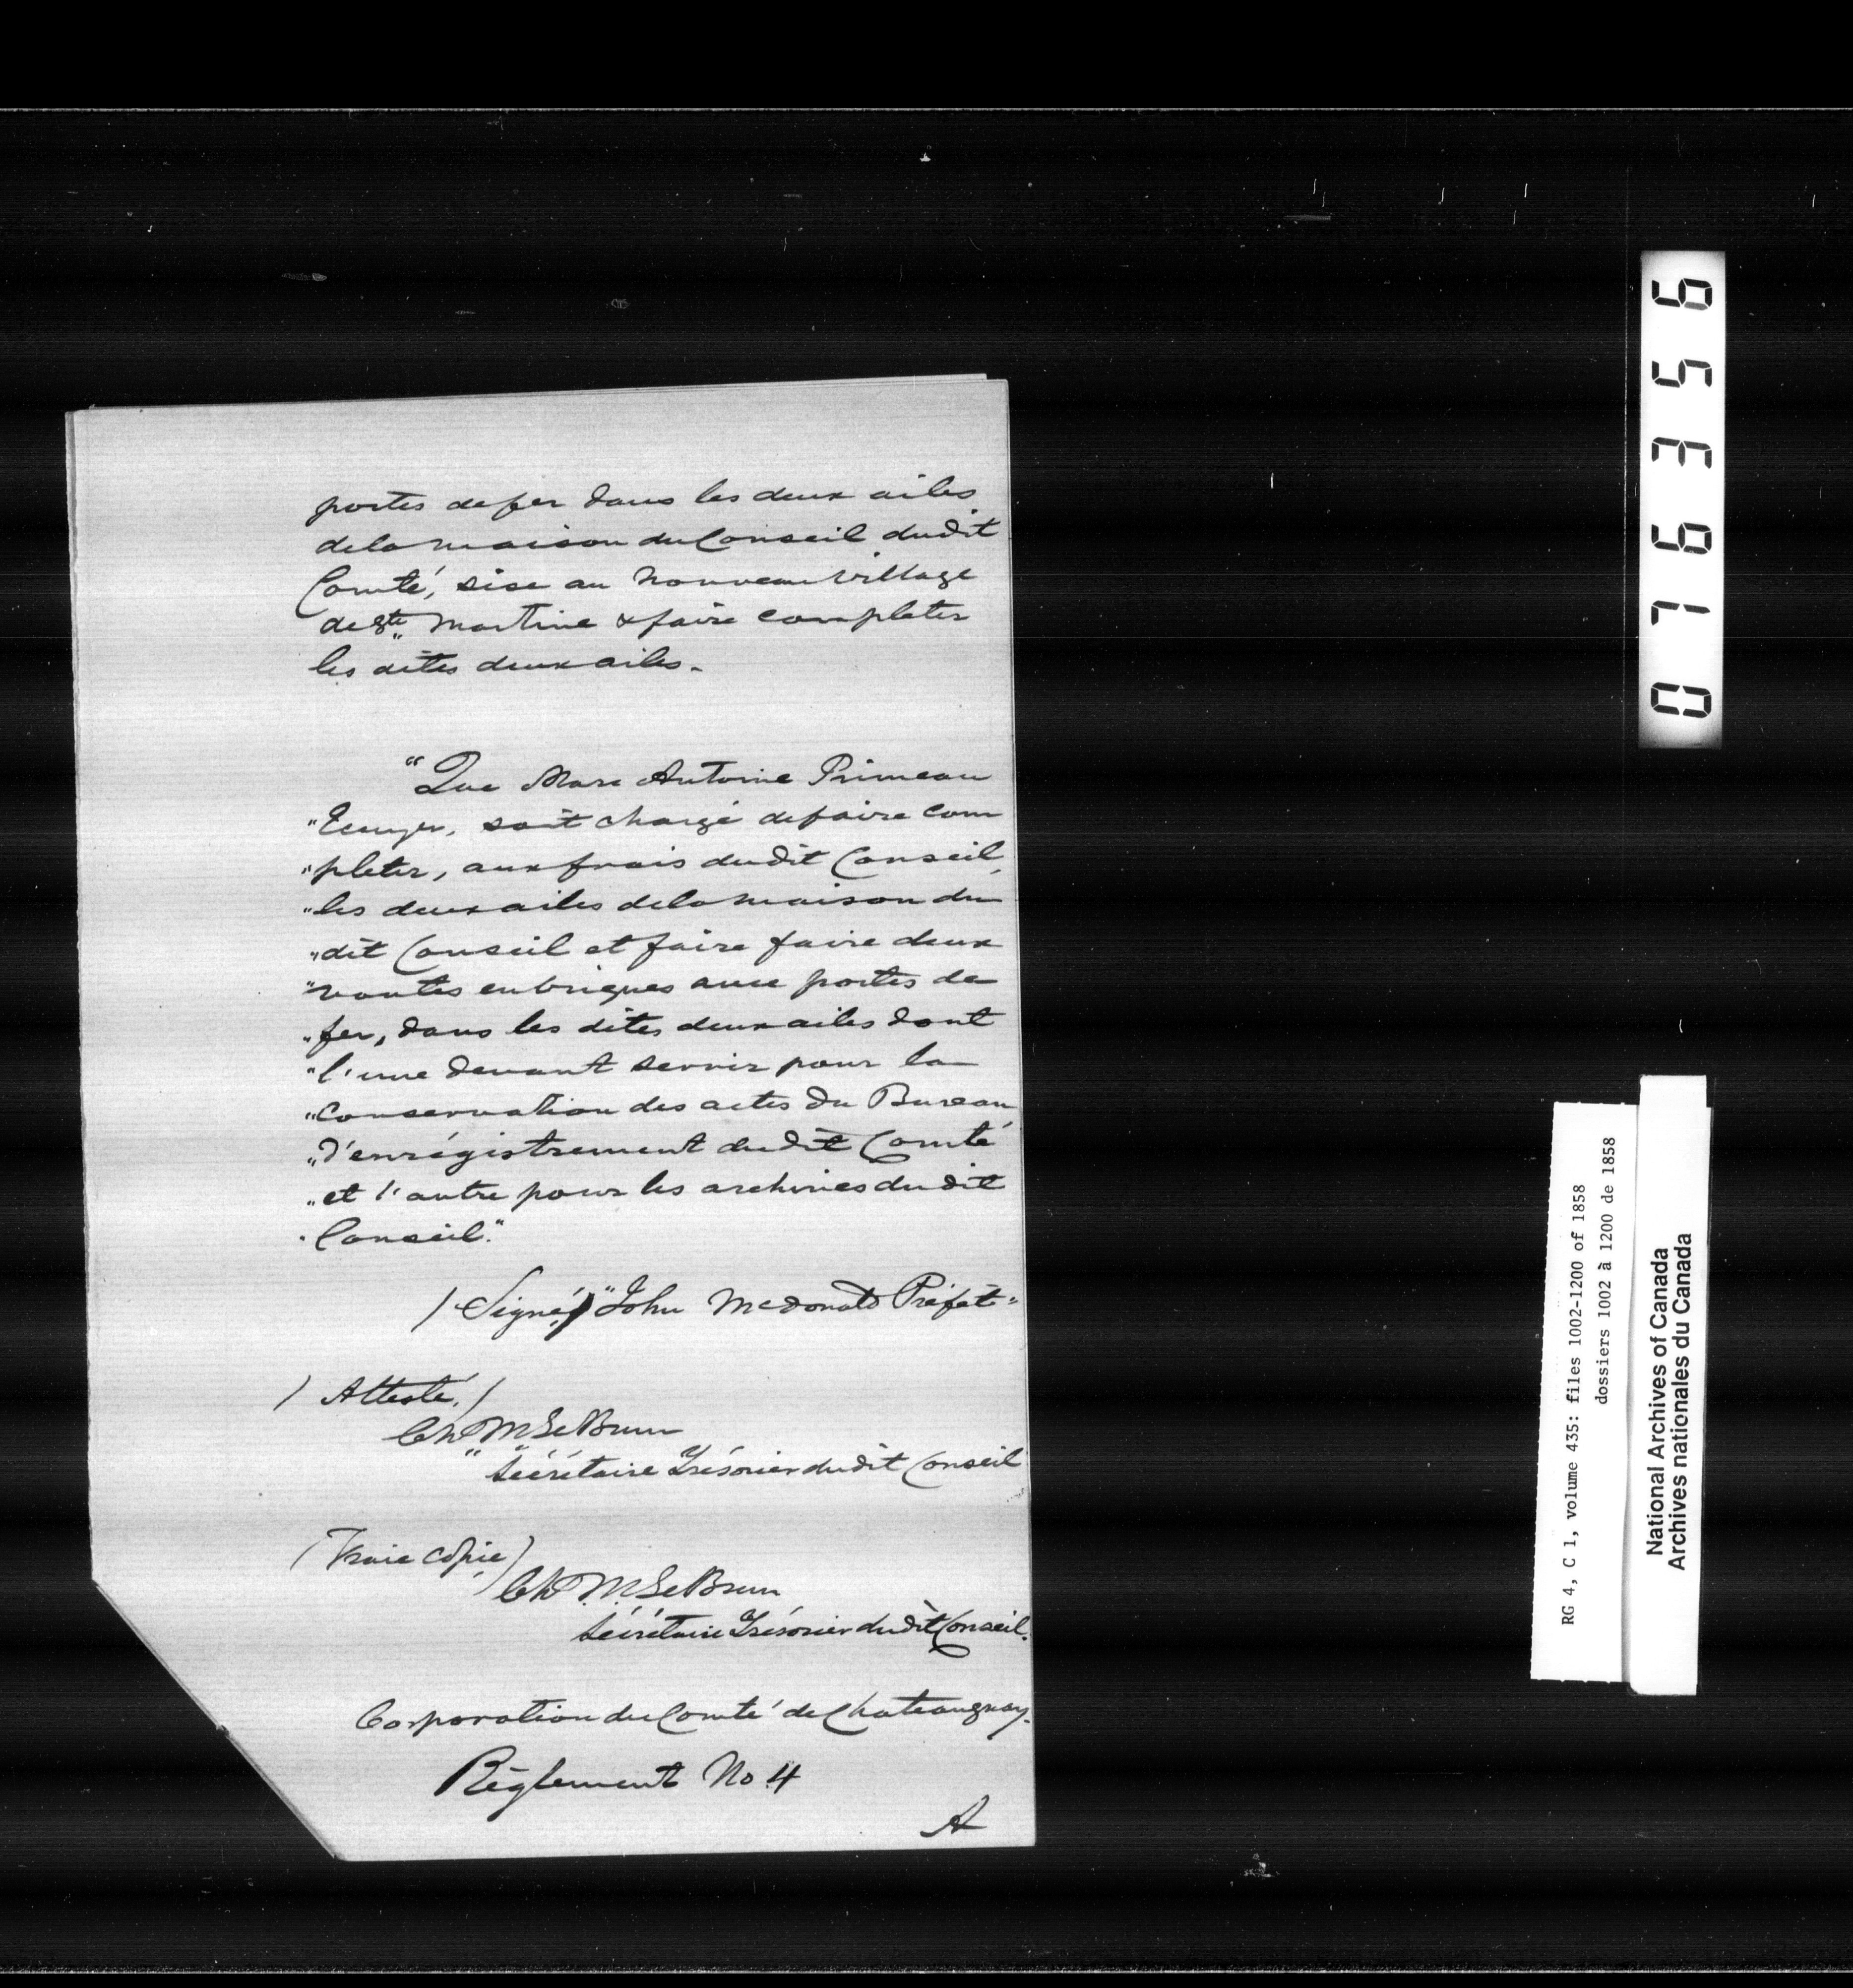 portes de fer dans les deux ailes
de la maison du Conseil du dit
Comté, sise au nouveau village
de Ste Martine & faire completer
les dites deux ailes.
"Que Marc Antoine Primeau
"Ecuyer, soit chargé de faire com
"pleter, aux frais du dit Conseil,
"les deux ailes de la maison du
"dit Conseil et faire faire deux
"voutes en briques avec portes de
"fer, dans les dites deux ailes dont
"l'une devant servir pour la
"conservation des actes du Bureau
"d'enrégistrement du dit Comté
"et l'autre pour les archives du dit
"Conseil."
(Signé,) "John McDonald Préfet"
(Attesté,)
Ch M LeBrun
Sécrétaire Trésorier du dit Conseil
(Vraie Copie,)
Ch M. LeBrun
Sécrétaire Trésorier du dit Conseil.
Corporation du Comté de Chateauguay.
Règlement No. 4
A
076356
RG 4, C 1, volume 435: files 1002-1200 of 1858
dossiers 1002 à 1200 de 1858
National Archives of Canada
Archives nationales du Canada